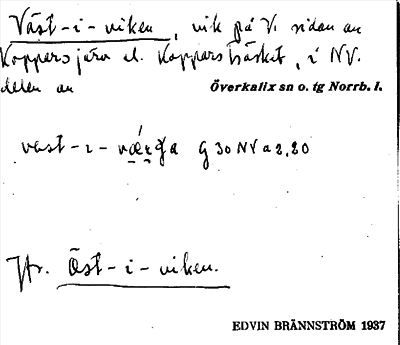 Väst-i-viken, vik på V. sidan av
Koppersjärv el. Koppersträsket, i NV.
delen av Överkalix sn o. tg Norrb. l.
väst-ı-
G 30 NV a 2, 20
Jfr. Öst-i-viken.
EDVIN BRÄNNSTRÖM 1937